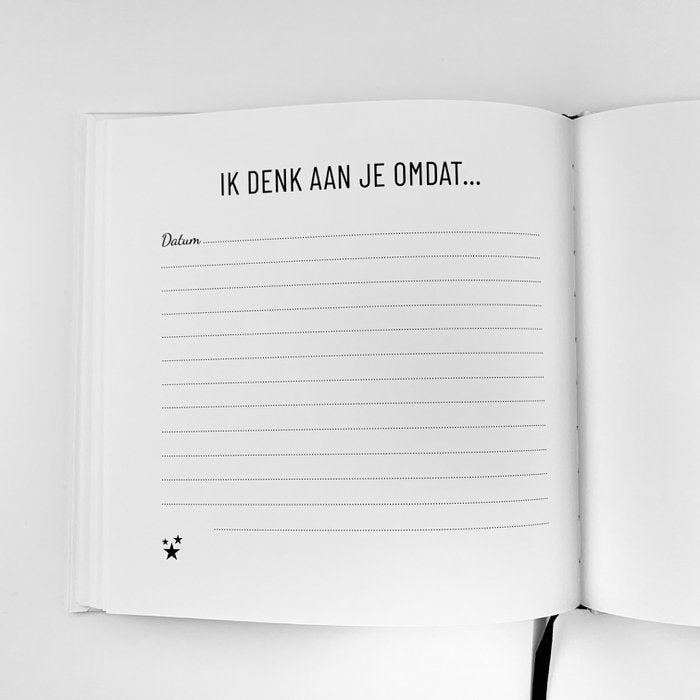 IK DENK AAN JE OMDAT...
Datum